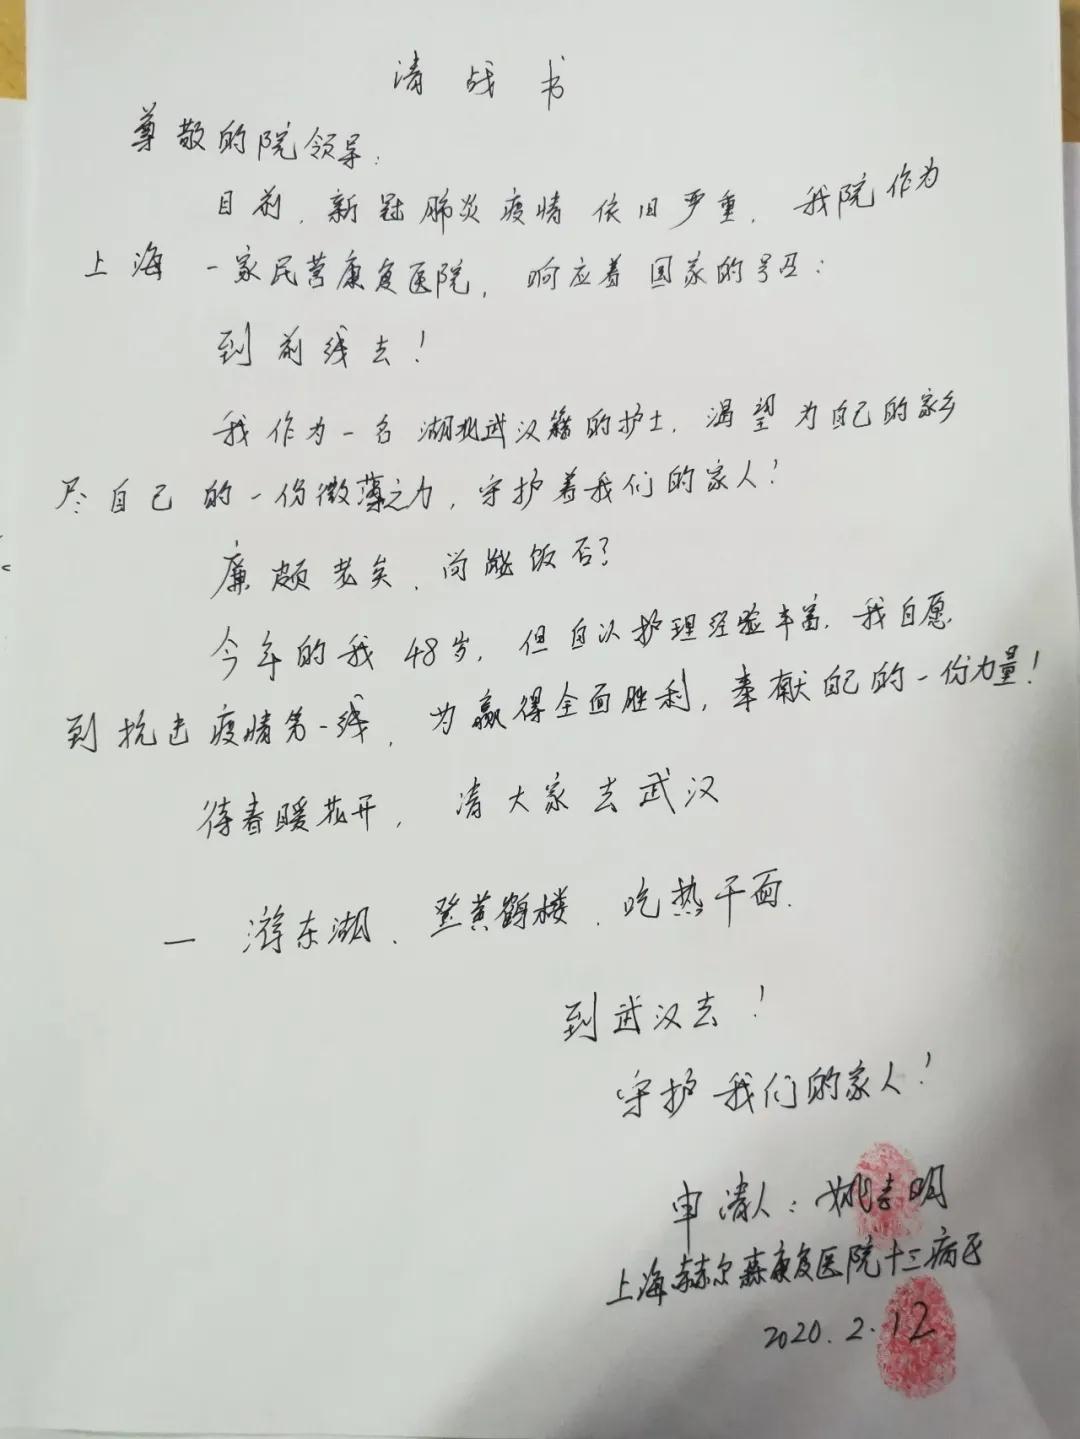 请战书
尊敬的院领导:
目前,新冠肺炎疫情依旧严重,我院作为
上海一家民营康复医院,响应着国家的号召:
到前线去!
我作为一名湖北武汉籍的护士,渴望为自己的家乡
尽自己的一份微薄之力,守护着我们的家人!
廉颇老矣,尚能饭否?
今年的我48岁,但自认护理经验丰富,我自愿
到抗击疫情第一线,为赢得全面胜利,奉献自己的一份力量!
待春暖花开,请大家去武汉
— 游东湖、登黄鹤楼、吃热干面.
到武汉去!
守护我们的家人!
申请人:姚李明
上海赫尔森康复医院十三病区
2020.2.12